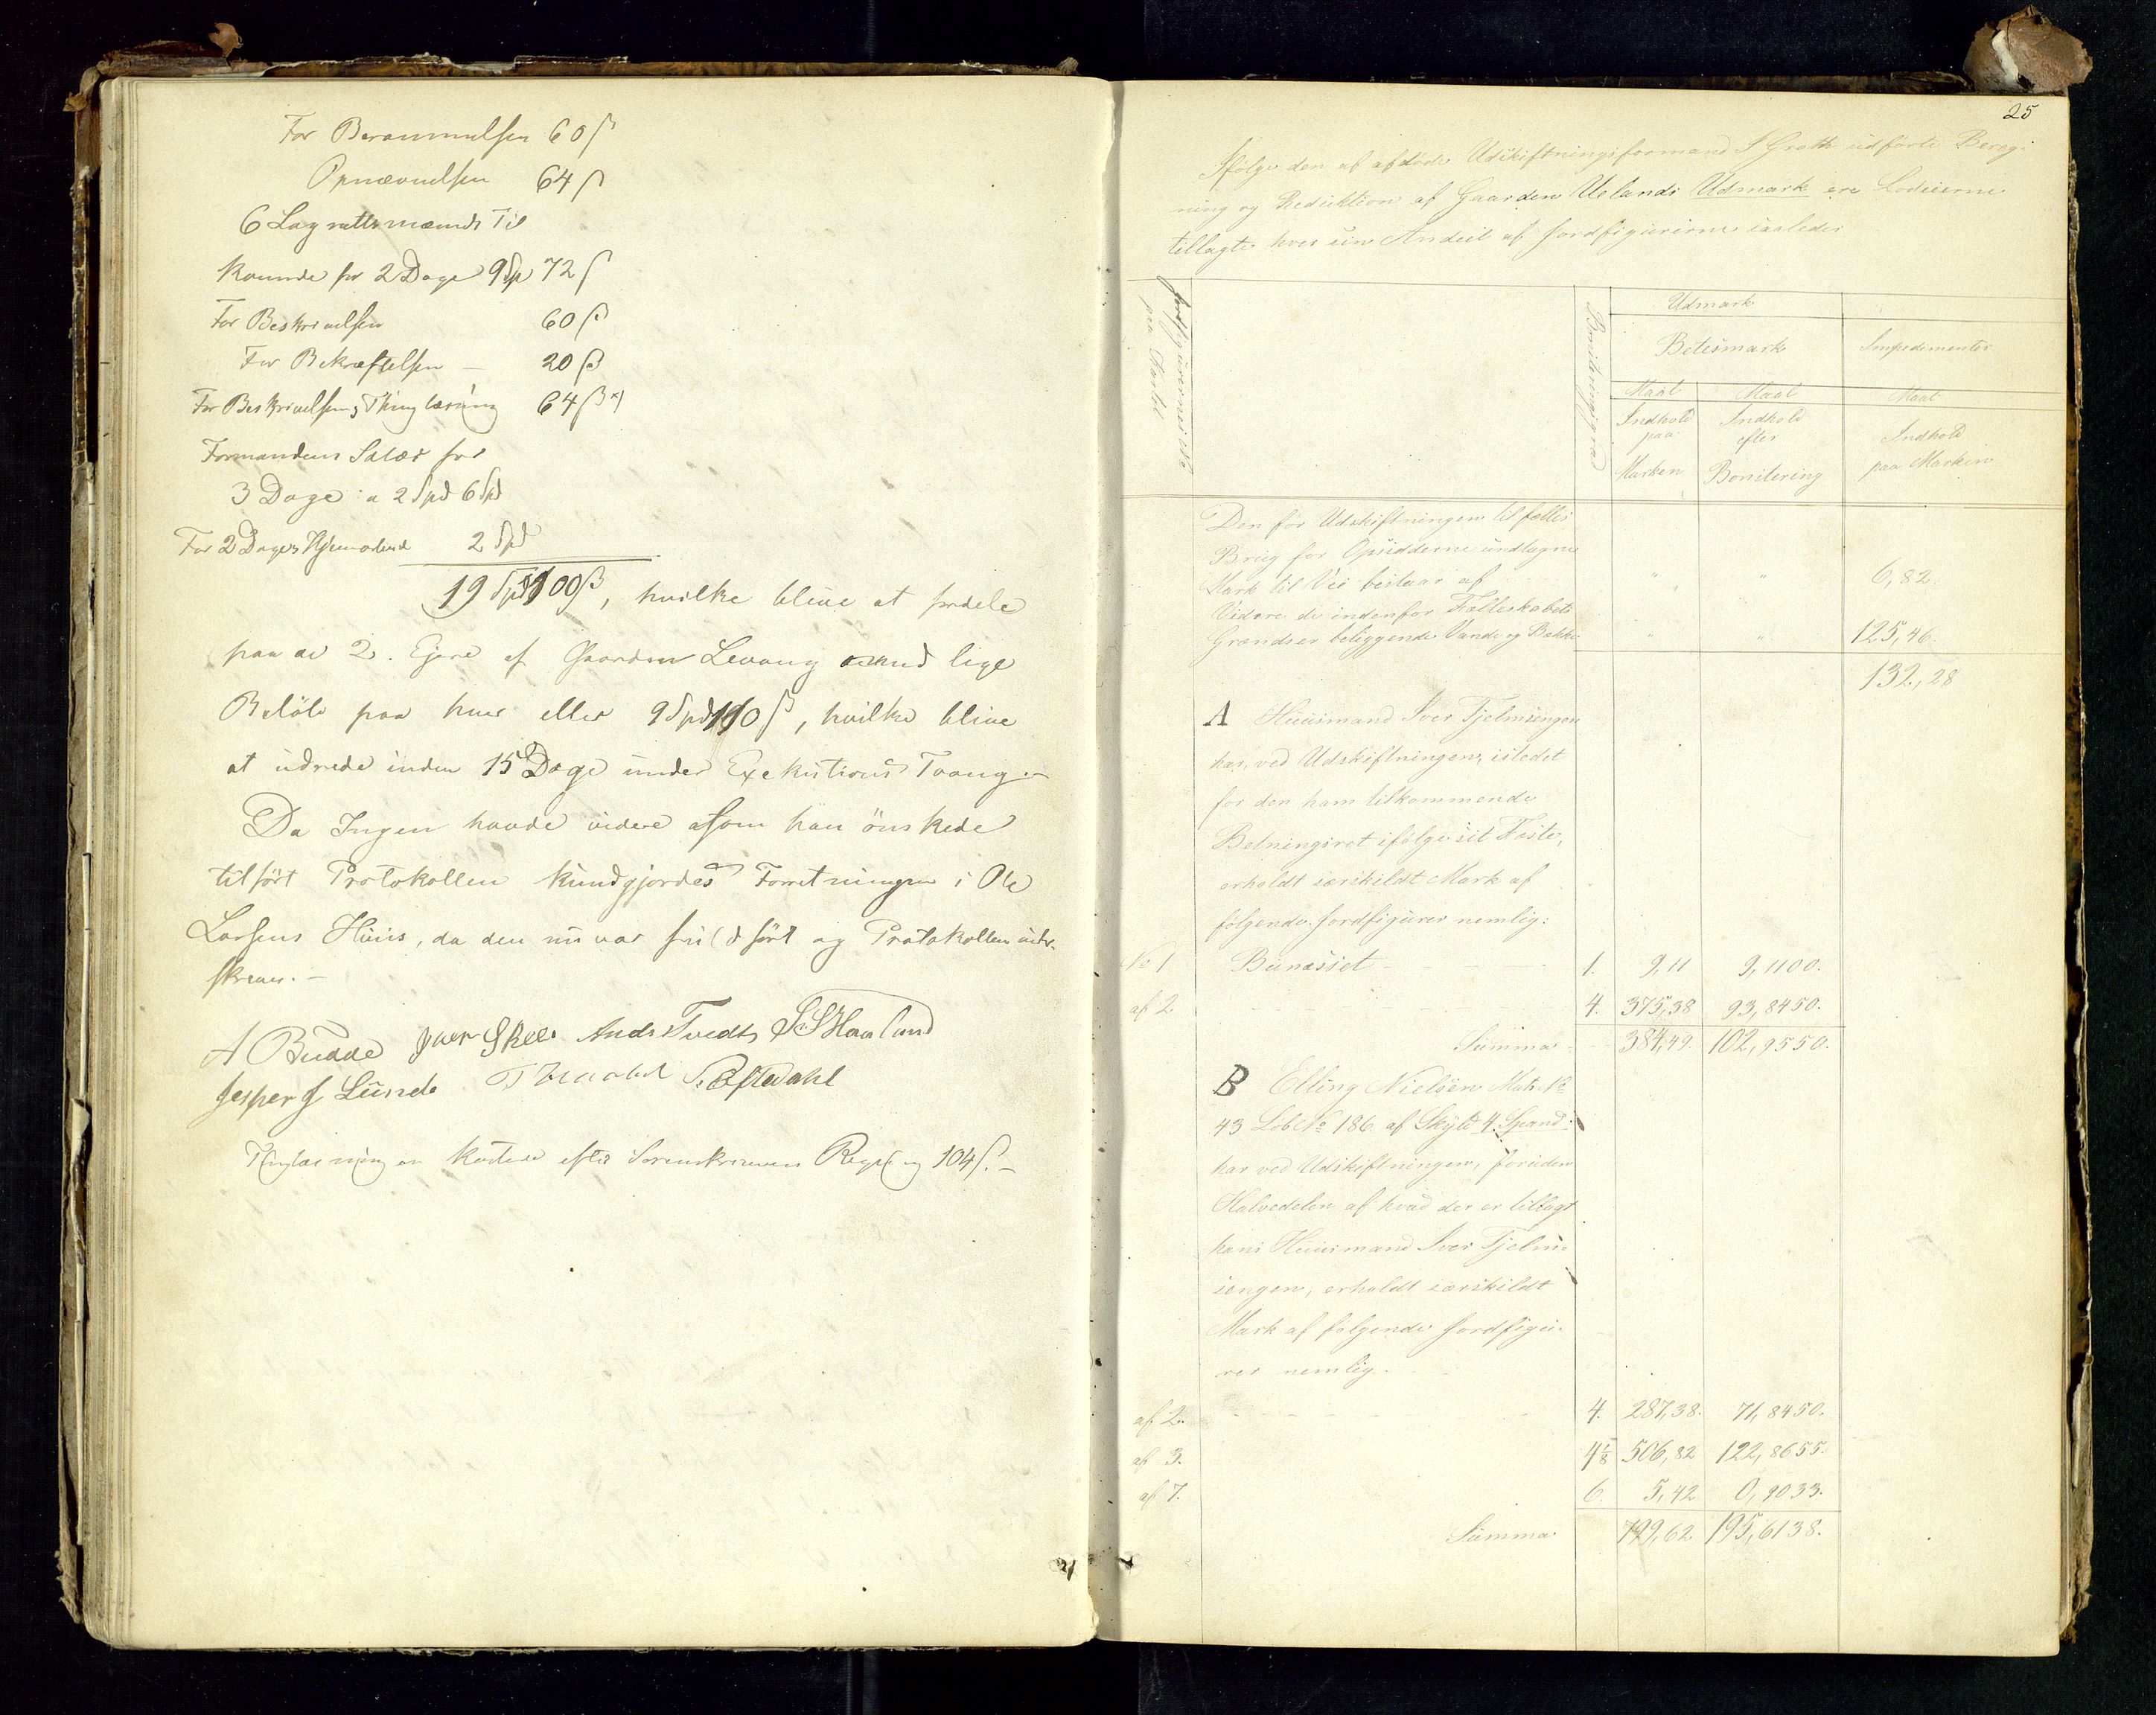 For Berammelsen 60 ß
Opnævnelsen 64 ß
6 Lagrettesmænds Til
kaunde for 2 Dage 9 Sp 72 ß
For Beskrivelsen 60 ß
For Bekræftelsen — 20 ß
For Beskrivelsens Thinglæsning 64 ß x)
Formandens Salær for
3 Dage a 2 Spd 6 Spd
For 2 Dages 2 Spd
19 Spd 100 ß, hvilke blive at fordele
paa de 2. Ejere af Gaarden Levang med lige
Beløb paa hver eller 9 Spd 110 ß, hvilke blive
at udrede inden 15 Dage under Exekutions Tvang.—
Da Ingen havde videre som han önskede
tilført Protokollen kundgjordes Forretningen i Ole
Larsens Huus, da den nu var fuldført og Protokollen under-
skreven.—
A Budde Iver Skeie Ands Tvedt S S Haaland
Jesper J Lunde T Braadal S. Eftedahl
Thinglæsningen kostede efter Sorenskriverens Regning 104 ß.—
25
Ifølge den af afdøde Udskiftningsformand S Groth udførte Bereg-
ning og Reduktion af Gaarden Uelands Udmark ere Lodeierne
tillagte hver sin Andeel af Jordfigurerne saaledes
Jordfigurernes No
paa Kartet
Boniteringsgrad
Udmark
Betesmark Impedimenter
Maal Maal Maal
Indhold Indhold Indhold
paa efter paa Marken
Marken Bonitering
Den før Udskiftningen til fælles
Brug for Opsidderne undtagne
Mark til Vei bestaar af " " 6,82.
Videre de indenfor Fælleskabets
Grændser beliggende Vande og Bække " " 125,46.
132,28
A Huusmand Iver Tjelmsengen
har, ved Udskiftningen, istedet
for den ham tilkommende
Betningsret ifølge sit Feste,
erholdt særskildt Mark af
følgende Jordfigurer nemlig:
No 1 Bunæsset - - - 1. 9,11 9,1100.
af 2 - - - 4. 375,38 93,8450.
Summa - 384,49. 102,9550.
B Elling Nielsen Mat. No
43 Løb No 186 af Skyld 4 Spand
har ved Udskiftningen, foruden
Halvedelen af hvad der er tillagt
hans Huusmand Iver Tjelm-
sengen, erholdt særskildt
Mark af følgende Jordfigu-
rer nemlig.
af 2. - - - 4. 287,38. 71,8450.
af 3. 4 1/8 506,82 122,8655.
af 7. 6. 5,42 0,9033.
Summa 799,62 195,6138.